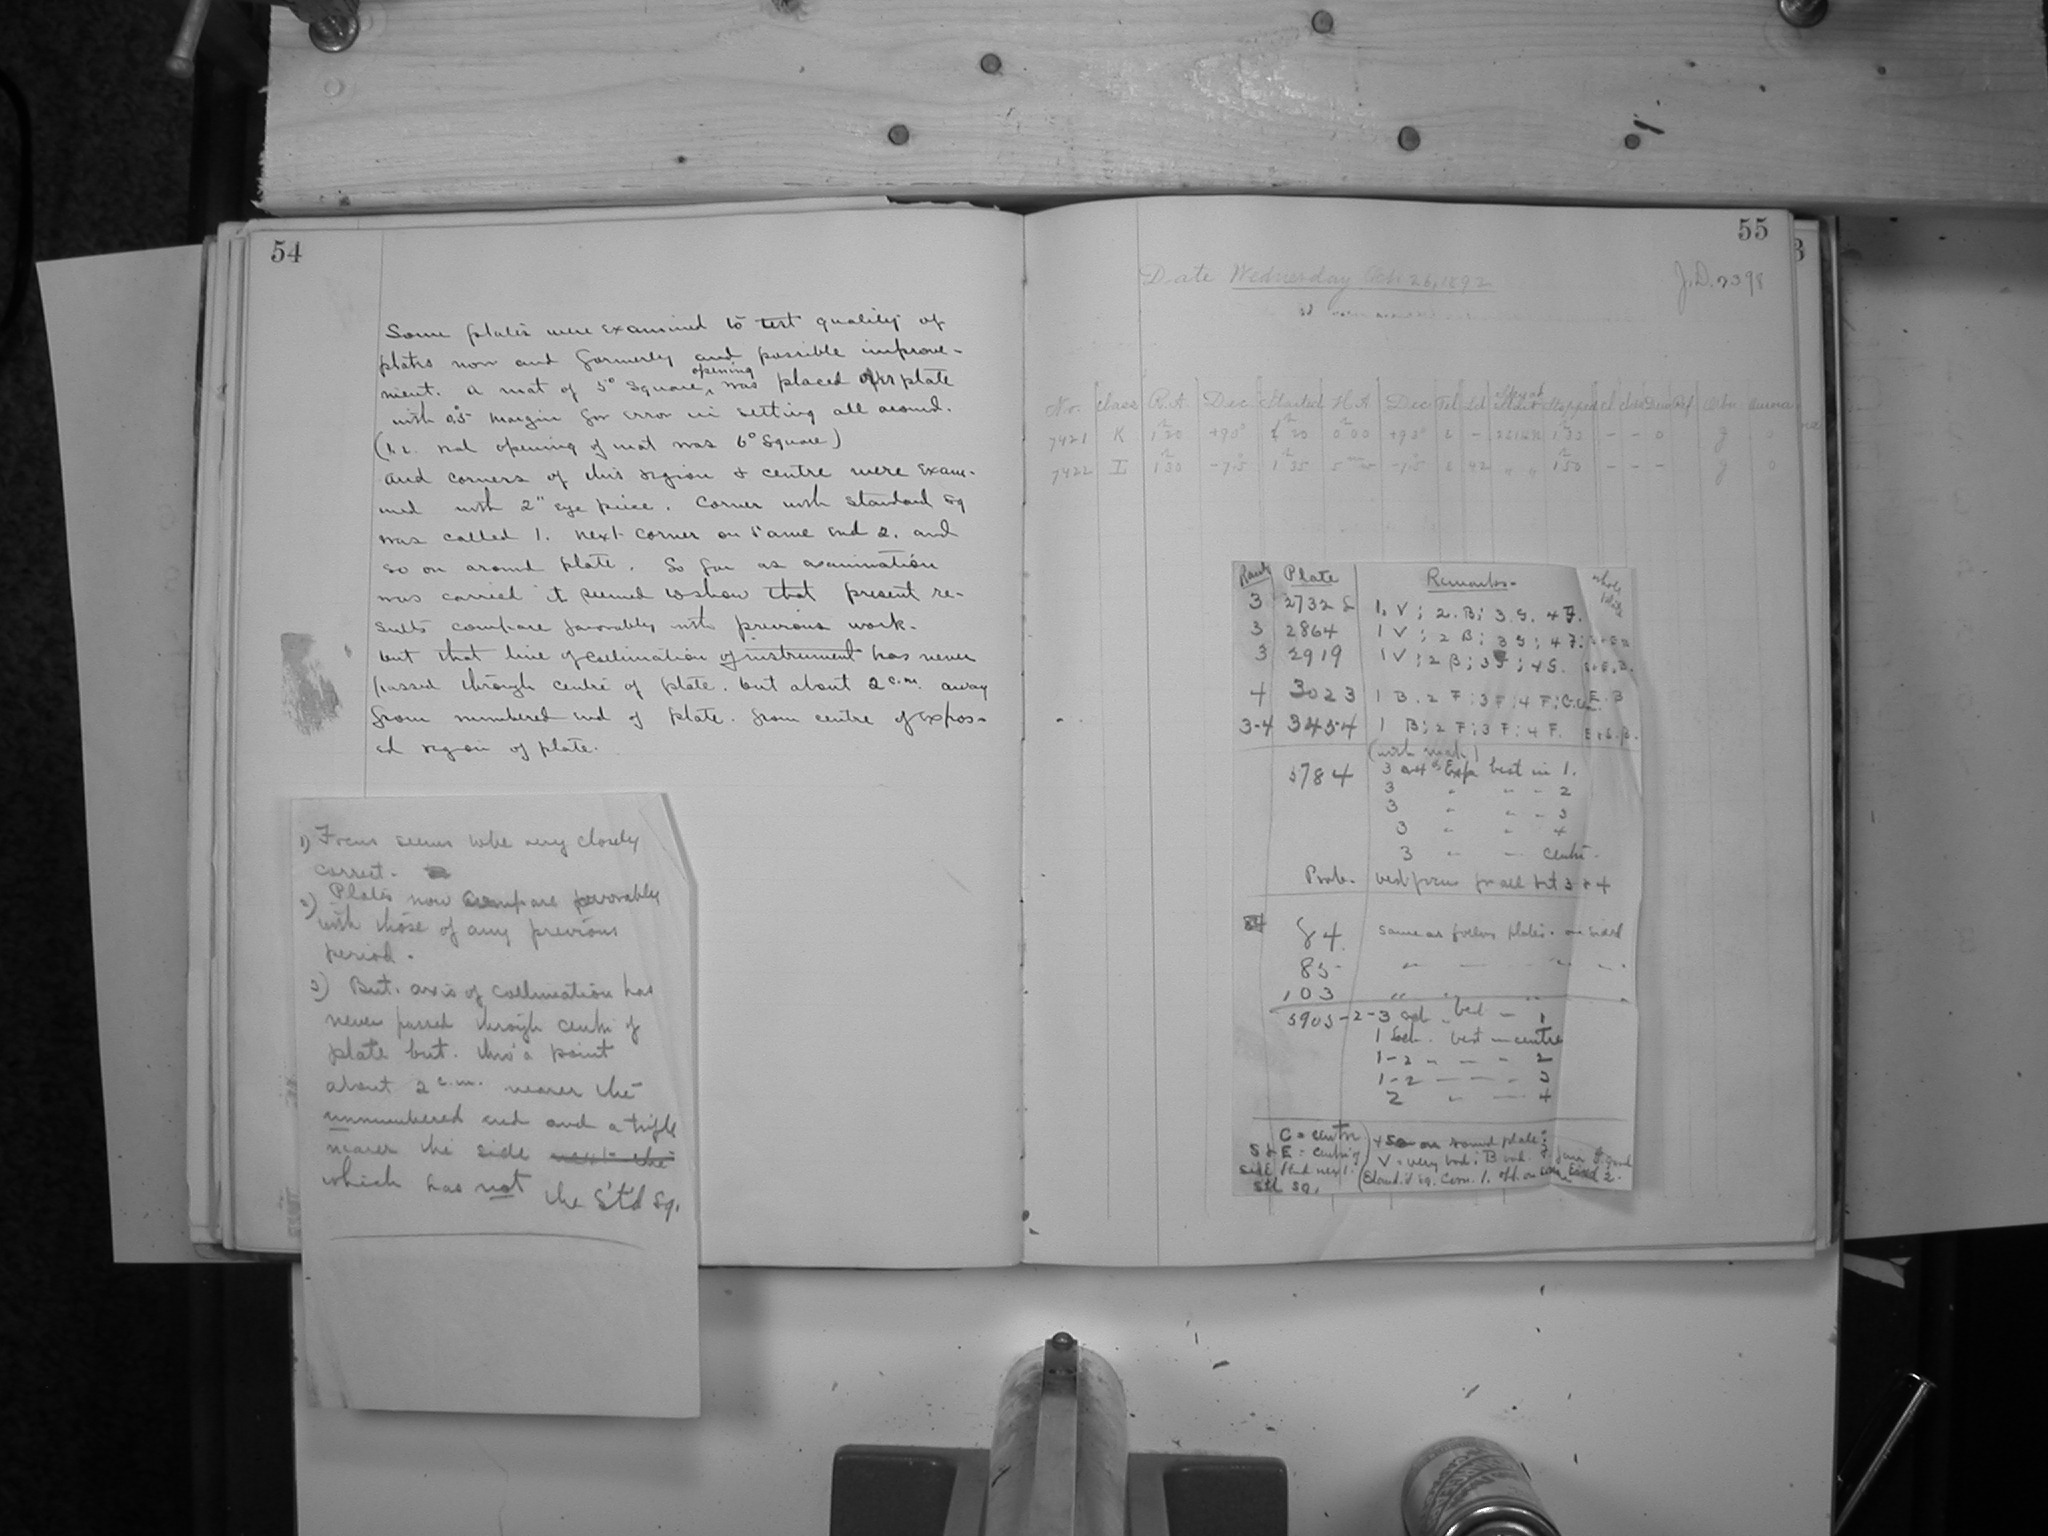 54
Some plates were examined to test quality of
plates now and formerly and possible improve-
ment. A mat of 5° square, opening was placed over plate
with 0.5 margin for error in setting all around.
(i.e. real opening of mat was 6° square)
and corners of this region & centre were exam-
ined with 2" eye piece. Corner with standard sq
was called 1. next corner on same end 2. and
so on around plate. So far as examination
was carried it seemed to show that present re-
sults compare favorably with previous work.
but that line of collimation of instrument has never
passed through centre of plate. but about 2 c.m. away
from numbered end of plate. from centre of expos-
ed region of plate.
1) Focus seems to be very closely
correct.
2) Plates now compare favorably
with those of any previous
period.
3) But. axis of collimation has
never passed through centre of
plate but. thro' a point
about 2 c.m. nearer the
unnumbered end and a trifle
nearer the side next the
which has not the St'd Sq.
55
Date Wednesday Oct. 26, 1892
J.D. 2398
No. Class R.A. Dec. Started H.A. Dec. Tel Stopped
7421 K 1 20 +90° 1 20 0 00 +90° - 1 - - 0 g 0
7422 I 1 30 1 35 42 " " 1 50 - - - g 0
Rank Plate Remarks- whole plate
3 2732 1. V; 2. B; 3. G. 4 F.
3 2864 1 V; 2 B; 3 G; 4 F;
3 2919 1 V; 2 B; 3 F; 4 G. S+E.B.
4 3023 1 B. 2 F; 3 F; 4 F; E. B
3-4 3454 1 B; 2 F; 3 F; 4 F. E+S.B.
(with mask)
5784 3 Exp best in 1.
3 " " - 2
3 " " - 3
3 " " 4
3 " - centre.
Prob. best focus for all but 3 & 4
84. same as follows plates.
85- " — "
103 " "
5905-2-3 best — 1
1 best — centre
1-2 " — " 2
1-2 — — - 3
2 " — 4
C = centre
S & E = centre of
side & end near 1.
Std Sq.
V = very bad; B bad. F fair G good
Stand'd sq. Corn. 1.